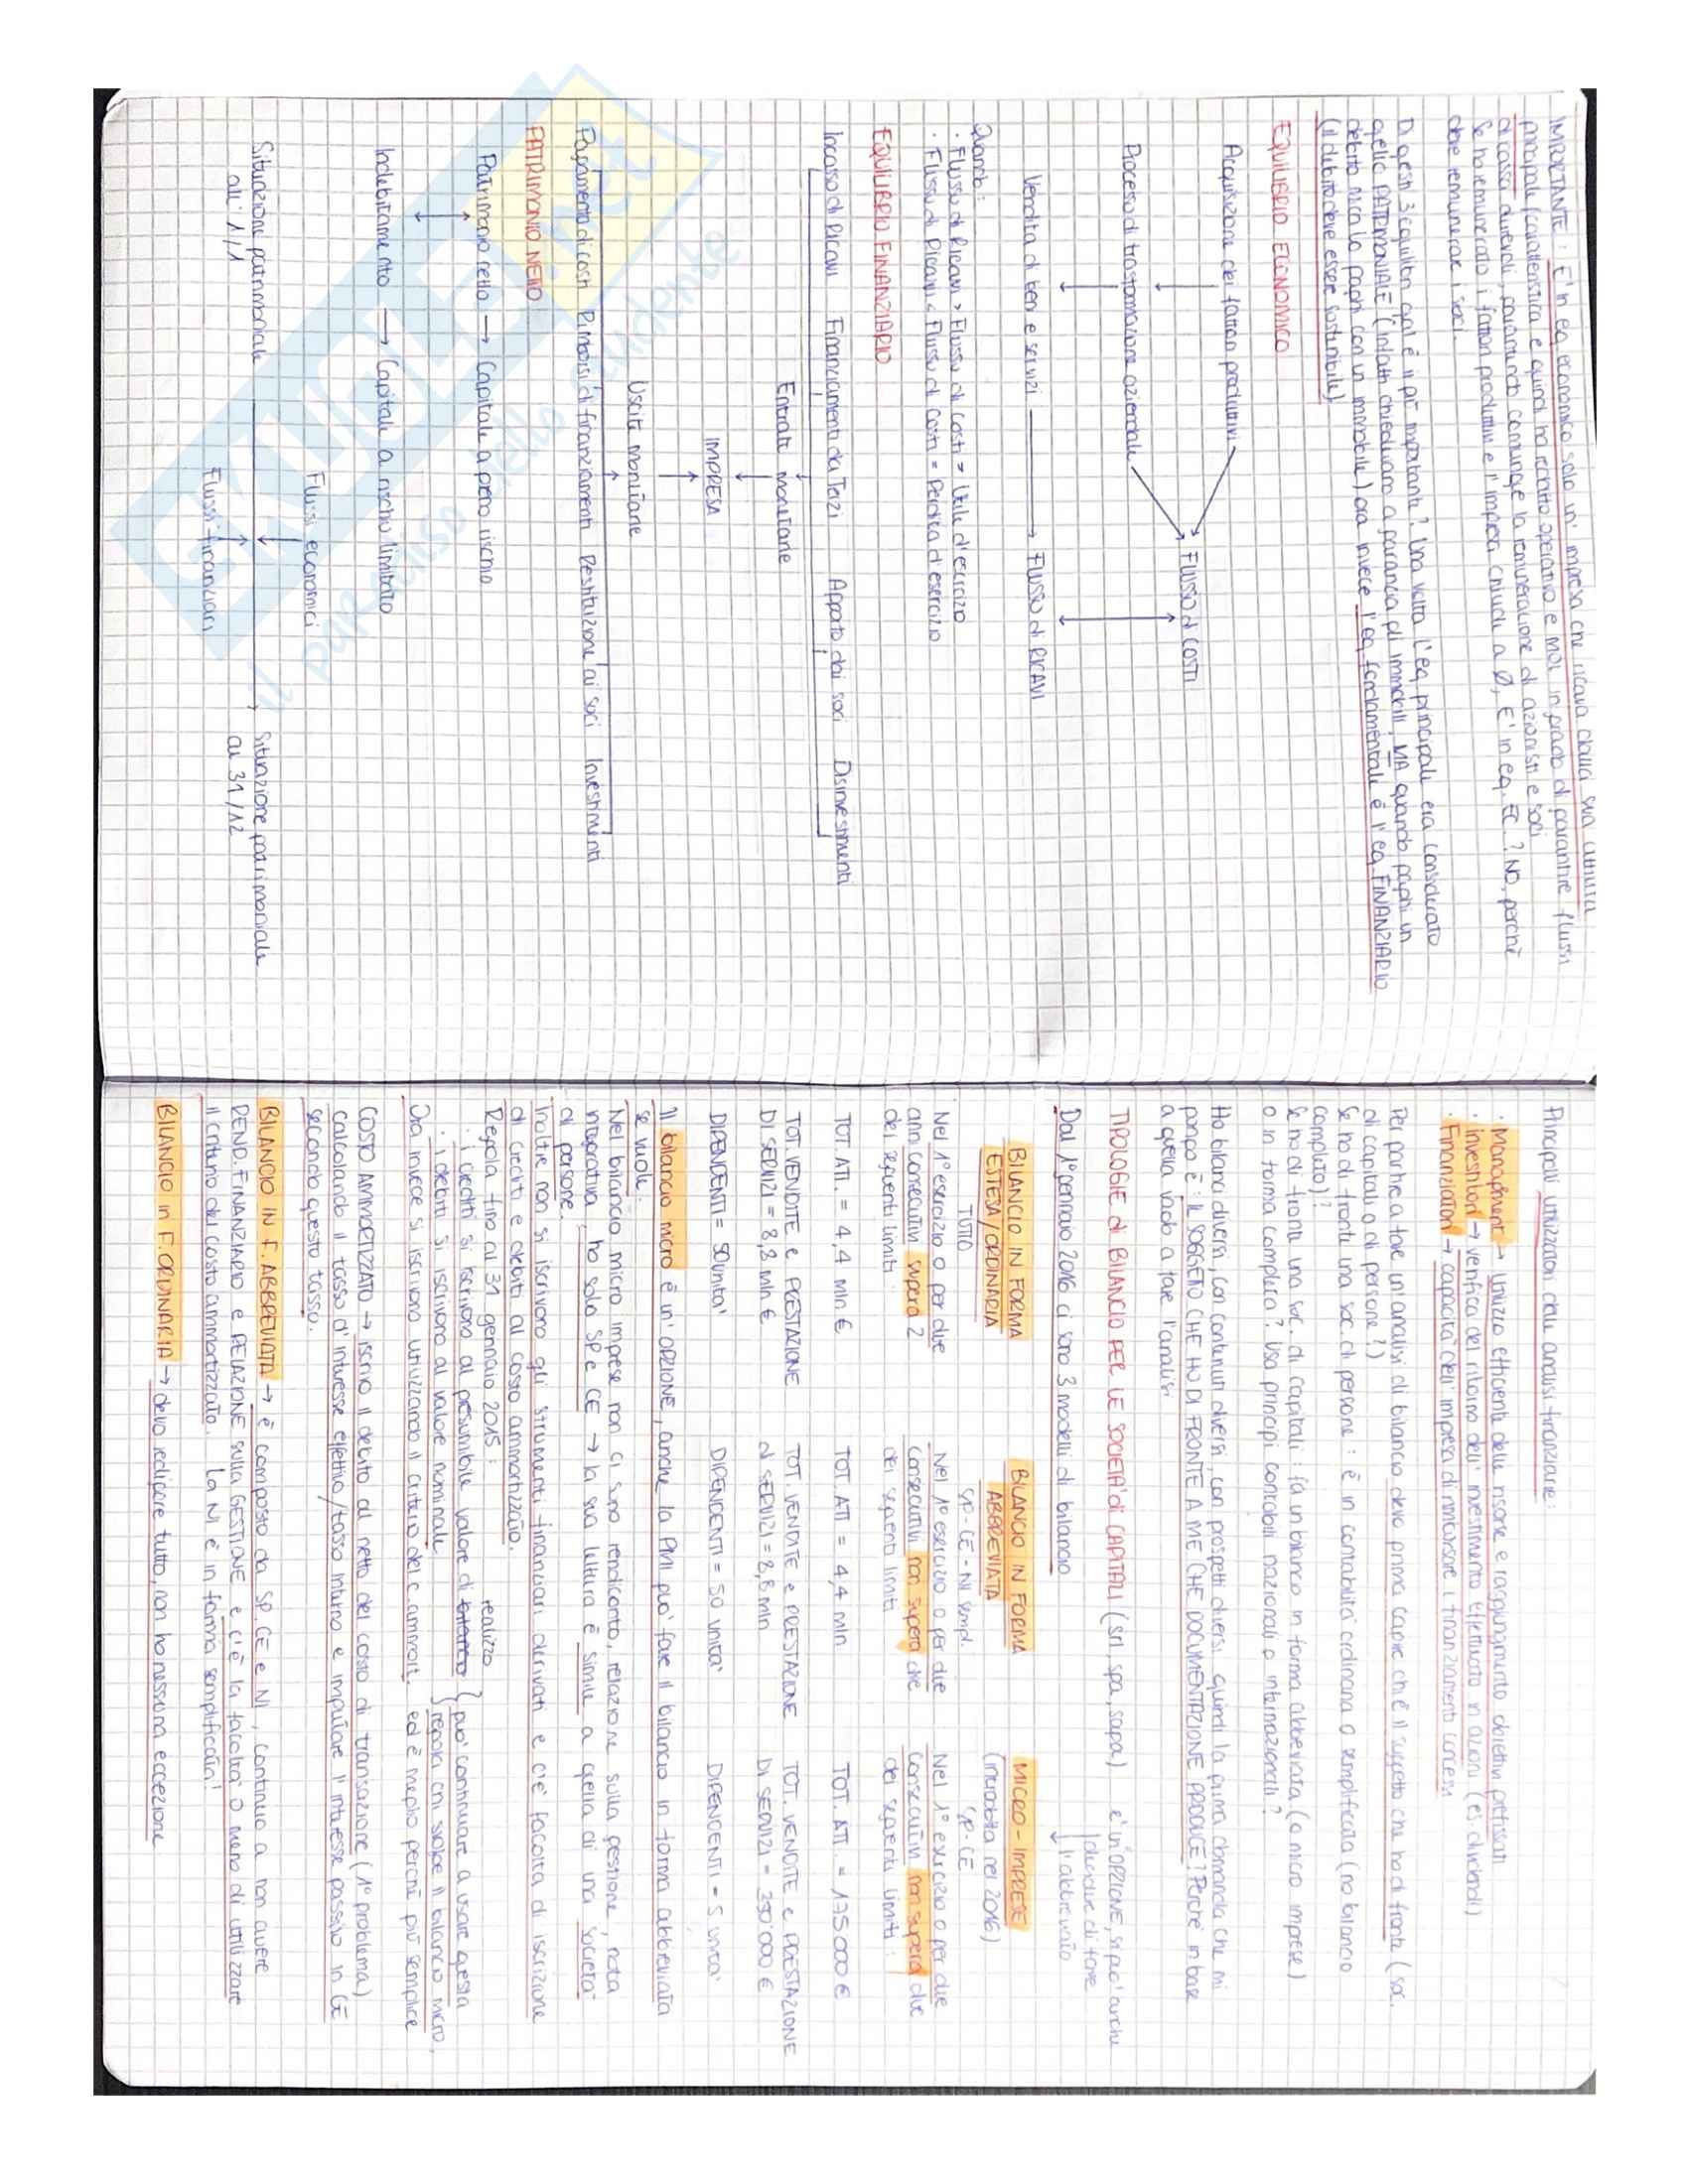 IMPORTANTE: E' in eq economico solo un' impresa che ricava dalla sua attività
principale (caratteristica e quindi ha reddito operativo e MOL in grado di garantire flussi
di cassa durevoli, garantendo comunque la remunerazione di azionisti e soci
Se ho remunerato i fattori produttivi e l'impresa chiude a Ø, E' in eq. EC.? NO, perchè
deve remunerare i soci.
Di questi 3 equilibri qual è il più importante? Una volta l'eq principale era considerato
quello PATRIMONIALE (infatti chiedevano a garanzia gli immobili, MA quando paghi un
debito mica lo paghi con un immobile) ora invece l'eq fondamentale è l'eq FINANZIARIO
(il debito deve essere sostenibile)
EQUILIBRIO ECONOMICO
Acquisizione dei fattori produttivi
→ FLUSSO di COSTI
Processo di trasformazione aziendale
Vendita di beni e servizi → FLUSSO di RICAVI
Quando:
· Flusso di Ricavi > Flusso di costi = Utile d'esercizio
· Flusso di Ricavi < Flusso di Costi = Perdita d'esercizio
EQUILIBRIO FINANZIARIO
Incasso di Ricavi Finanziamenti da Terzi Apporto dai soci Disinvestimenti
Entrate monetarie
IMPRESA
Uscite monetarie
Pagamento di costi Rimborsi di finanziamenti Restituzione ai soci Investimenti
PATRIMONIO NETTO
Patrimonio netto → Capitale a pieno rischio
Indebitamento → Capitale a rischio limitato
Flussi economici
Situazione patrimoniale → Situazione patrimoniale
all' 1/1 al 31/12
Flussi finanziari
Principali utilizzatori delle analisi finanziarie:
· Management → utilizzo efficiente delle risorse e raggiungimento obiettivi prefissati
· Investitori → verifica del ritorno dell'investimento effettuato in azioni (es dividendi)
· Finanziatori → capacità dell'impresa di rimborsare i finanziamenti concessi
Per poter fare un'analisi di bilancio devo prima capire chi è il soggetto che ho di fronte (soc.
di capitali o di persone?)
Se ho di fronte una soc. di persone: è in contabilità ordinaria o semplificata (no bilancio
completo)?
Se ho di fronte una soc. di capitali: fa un bilancio in forma abbreviata (o micro imprese)
o in forma completa? Usa principi contabili nazionali o internazionali?
Ho bilanci diversi, con contenuti diversi, con prospetti diversi quindi la prima domanda che mi
pongo è: IL SOGGETTO CHE HO DI FRONTE A ME CHE DOCUMENTAZIONE PRODUCE? Perchè in base
a quella vado a fare l'analisi
TIPOLOGIE di BILANCIO PER LE SOCIETÀ di CAPITALI (srl, spa, sapa) è un'OPZIONE, si può anche
decidere di fare
Dal 1° gennaio 2016 ci sono 3 modelli di bilancio l'abbreviato
BILANCIO IN FORMA BILANCIO IN FORMA MICRO-IMPRESE
ESTESA/ORDINARIA ABBREVIATA (introdotta nel 2016)
TUTTO SP-CE-NI sempl. SP-CE
Nel 1° esercizio o per due Nel 1° esercizio o per due Nel 1° esercizio o per due
anni consecutivi supera 2 consecutivi non supera due consecutivi non supera due
dei seguenti limiti: dei seguenti limiti dei seguenti limiti:
TOT. ATT. = 4,4 mln € TOT. ATT = 4,4 mln TOT. ATT. = 175.000 €
TOT. VENDITE e PRESTAZIONE TOT. VENDITE e PRESTAZIONE TOT. VENDITE e PRESTAZIONE
DI SERVIZI = 8,8 mln € di SERVIZI = 8,8 mln DI SERVIZI = 350'000 €
DIPENDENTI = 50 unità DIPENDENTI = 50 unità DIPENDENTI = 5 unità
Il bilancio micro è un'OPZIONE, anche la PMI può fare il bilancio in forma abbreviata
se vuole.
Nel bilancio micro imprese non ci sono rendiconto, relazione sulla gestione, nota
integrativa, ho solo SP e CE → la sua lettura è simile a quella di una società
di persone.
Inoltre non si iscrivono gli strumenti finanziari derivati e c'è facoltà di iscrizione
di crediti e debiti al costo ammortizzato.
Regola fino al 31 gennaio 2015: realizzo
· i crediti si iscrivono al presumibile valore di } può continuare a usare questa
· i debiti si iscrivono al valore nominale. regola chi svolge il bilancio micro,
Ora invece si iscrivono utilizzando il criterio del c. ammort. ed è meglio perchè più semplice
COSTO AMMORTIZZATO → iscrivo il debito al netto del costo di transazione (1° problema)
calcolando il tasso d'interesse effettivo/tasso interno e imputare l'interesse passivo in CE
secondo questo tasso.
BILANCIO IN F. ABBREVIATA → è composto da SP, CE e NI, continuo a non avere
REND. FINANZIARIO e RELAZIONE sulla GESTIONE e c'è la facoltà o meno di utilizzare
il criterio del costo ammortizzato. La NI è in forma semplificata!
BILANCIO in F. ORDINARIA → devo redigere tutto, non ho nessuna eccezione